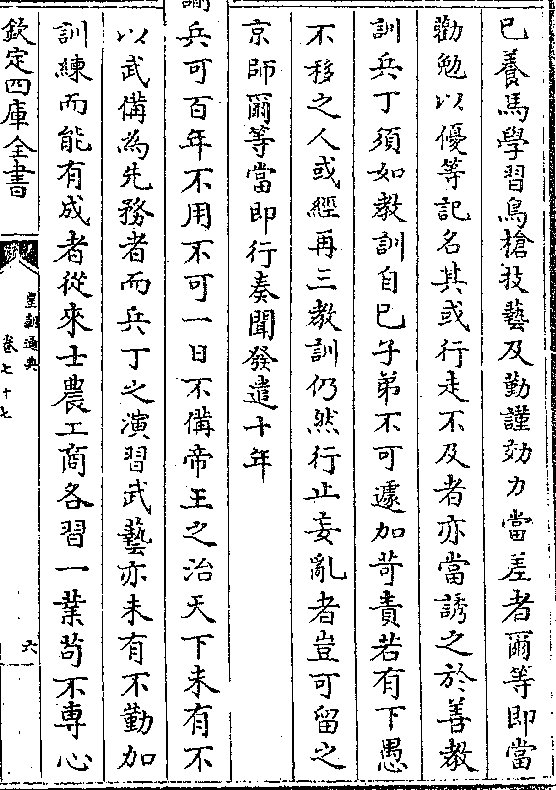 已養馬學習鳥槍技藝及勤謹効力當差者爾等即當
勸勉以優等記名其或行走不及者亦當誘之於善教
訓兵丁須如教訓自己子弟不可遽加苛責若有下愚
不移之人或經再三教訓仍然行止妄亂者豈可留之
京師爾等當即行奏聞發遣十年
諭兵可百年不用不可一日不備帝王之治天下未有不
以武備為先務者而兵丁之演習武藝亦未有不勤加
訓練而能有成者從來士農工商各習一業苟不專心
欽定四庫全書
皇朝通典
卷七十七
六